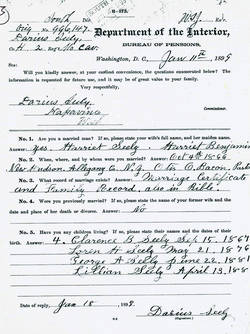 3-173.
Department of the Interior,
BUREAU OF PENSIONS,
Washington, D. C., Jan 11th 1898
SIR:
Will you kindly answer, at your earliest convenience, the questions enumerated below? The
information is requested for future use, and it may be of great value to your family.
Very respectfully,
Darius Seely
Commissioner.
No. 1. Are you a married man? If so, please state your wife's full name, and her maiden name.
Answer: Yes. Harriet Seely. Harriet Benjamin
No. 2. When, where, and by whom were you married? Answer: Oct 4th 1866
New Hudson Allegany Co. N.Y. C. Bacon
No. 3. What record of marriage exists? Answer: Marriage Certificate
and Family Record, also in Bible.
No. 4. Were you previously married? If so, please state the name of your former wife and the
date and place of her death or divorce. Answer: No
No. 5. Have you any children living? If so, please state their names and the dates of their
birth. Answer: 4. Clarence B Seely Sep 15, 1867
Loren H Seely May 21, 1876
George A Seely June 22, 1881
Lillian Seely April 13, 188
Date of reply, Jan 18, 1898.
Darius Seely